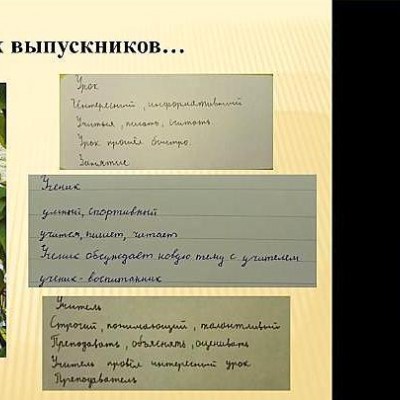 к выпускников...
Урок
Интересный, информативный
Учиться, писать, считать
Урок прошёл быстро.
Занятие
Ученик
умный, спортивный
учится, пишет, читает
Ученик обсуждает новую тему с учителем
ученик - воспитанник
Учитель
Строгий, понимающий, талантливый
Преподавать, объяснять, оценивать
Учитель провёл интересный урок
Преподаватель